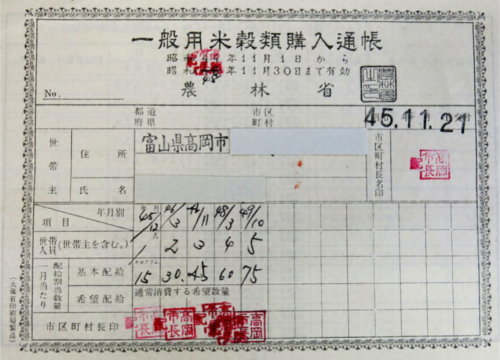 一般用米穀類購入通帳
昭和 年11月1日から
昭和48年11月30日まで有効
農林省
No.
都道府県
市区町村
45.11.21
世帯主
住所
富山県高岡市
氏名
市区町村長名印
高岡市長
項目
年月別
45年12月 46/3 11 48/3 49/10
世帯人員(世帯主を含む。)
1 2 3 4 5
一月当たり配給割当数量
基本配給
キログラム
15 30 45 60 75
希望配給
通常消費する希望数量
市区町村長印
高岡市長 高岡市長 高岡市長 高岡市長
(大蔵省印刷局製造)